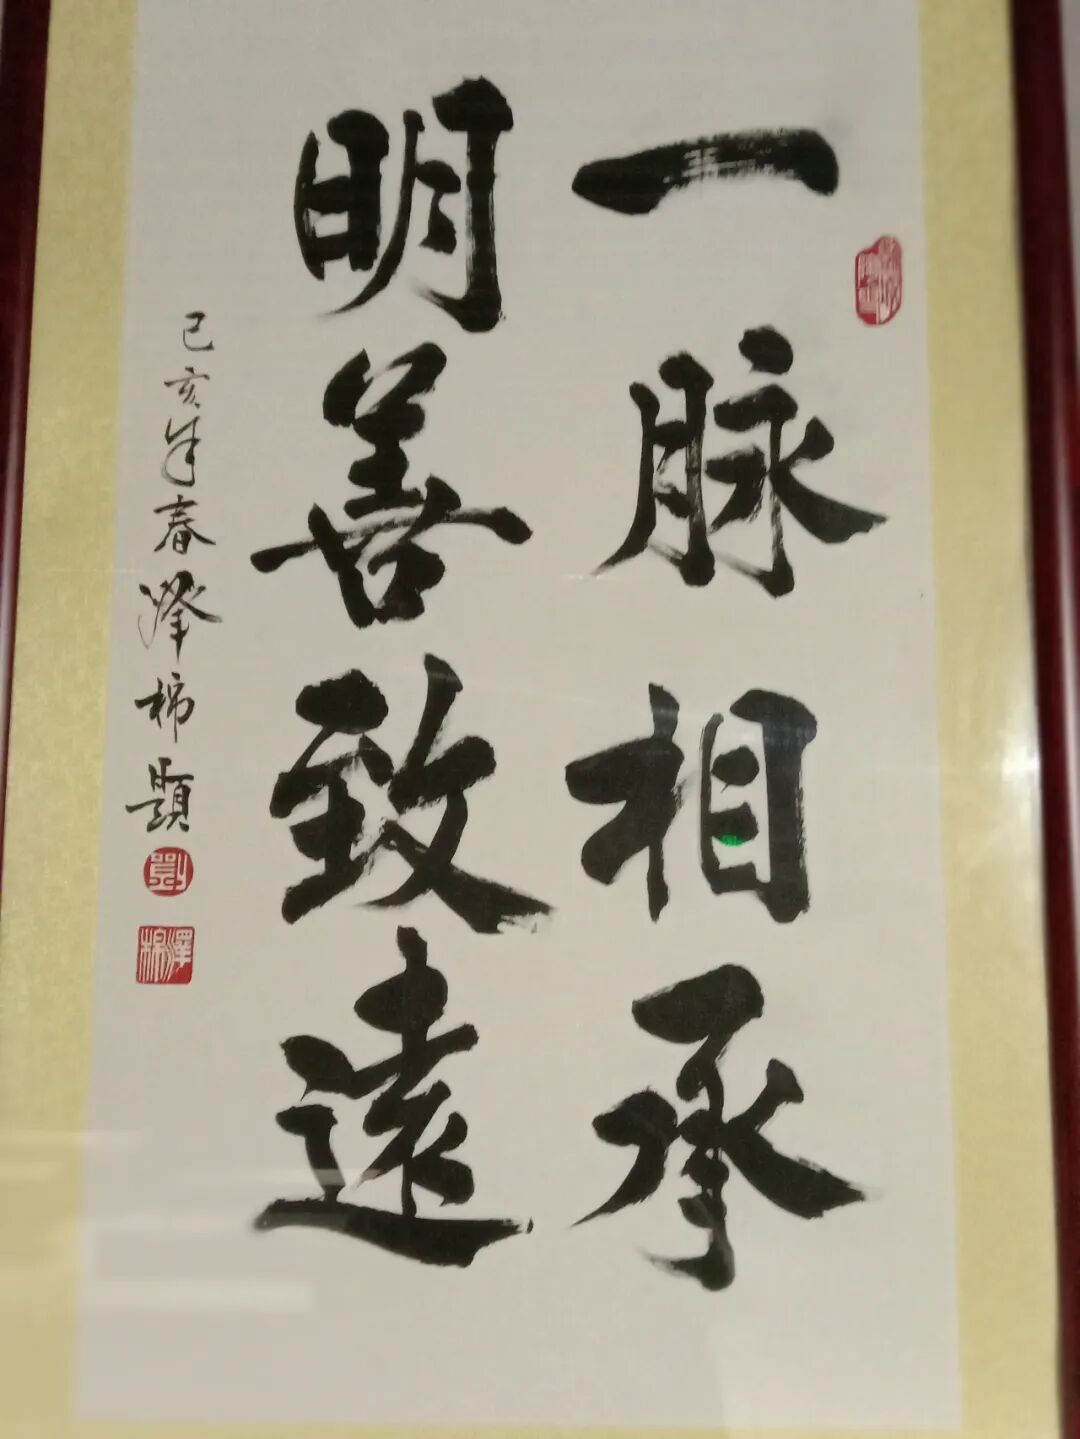 一脉相承
明善致遠
己亥年春澤棉題
劉
澤棉